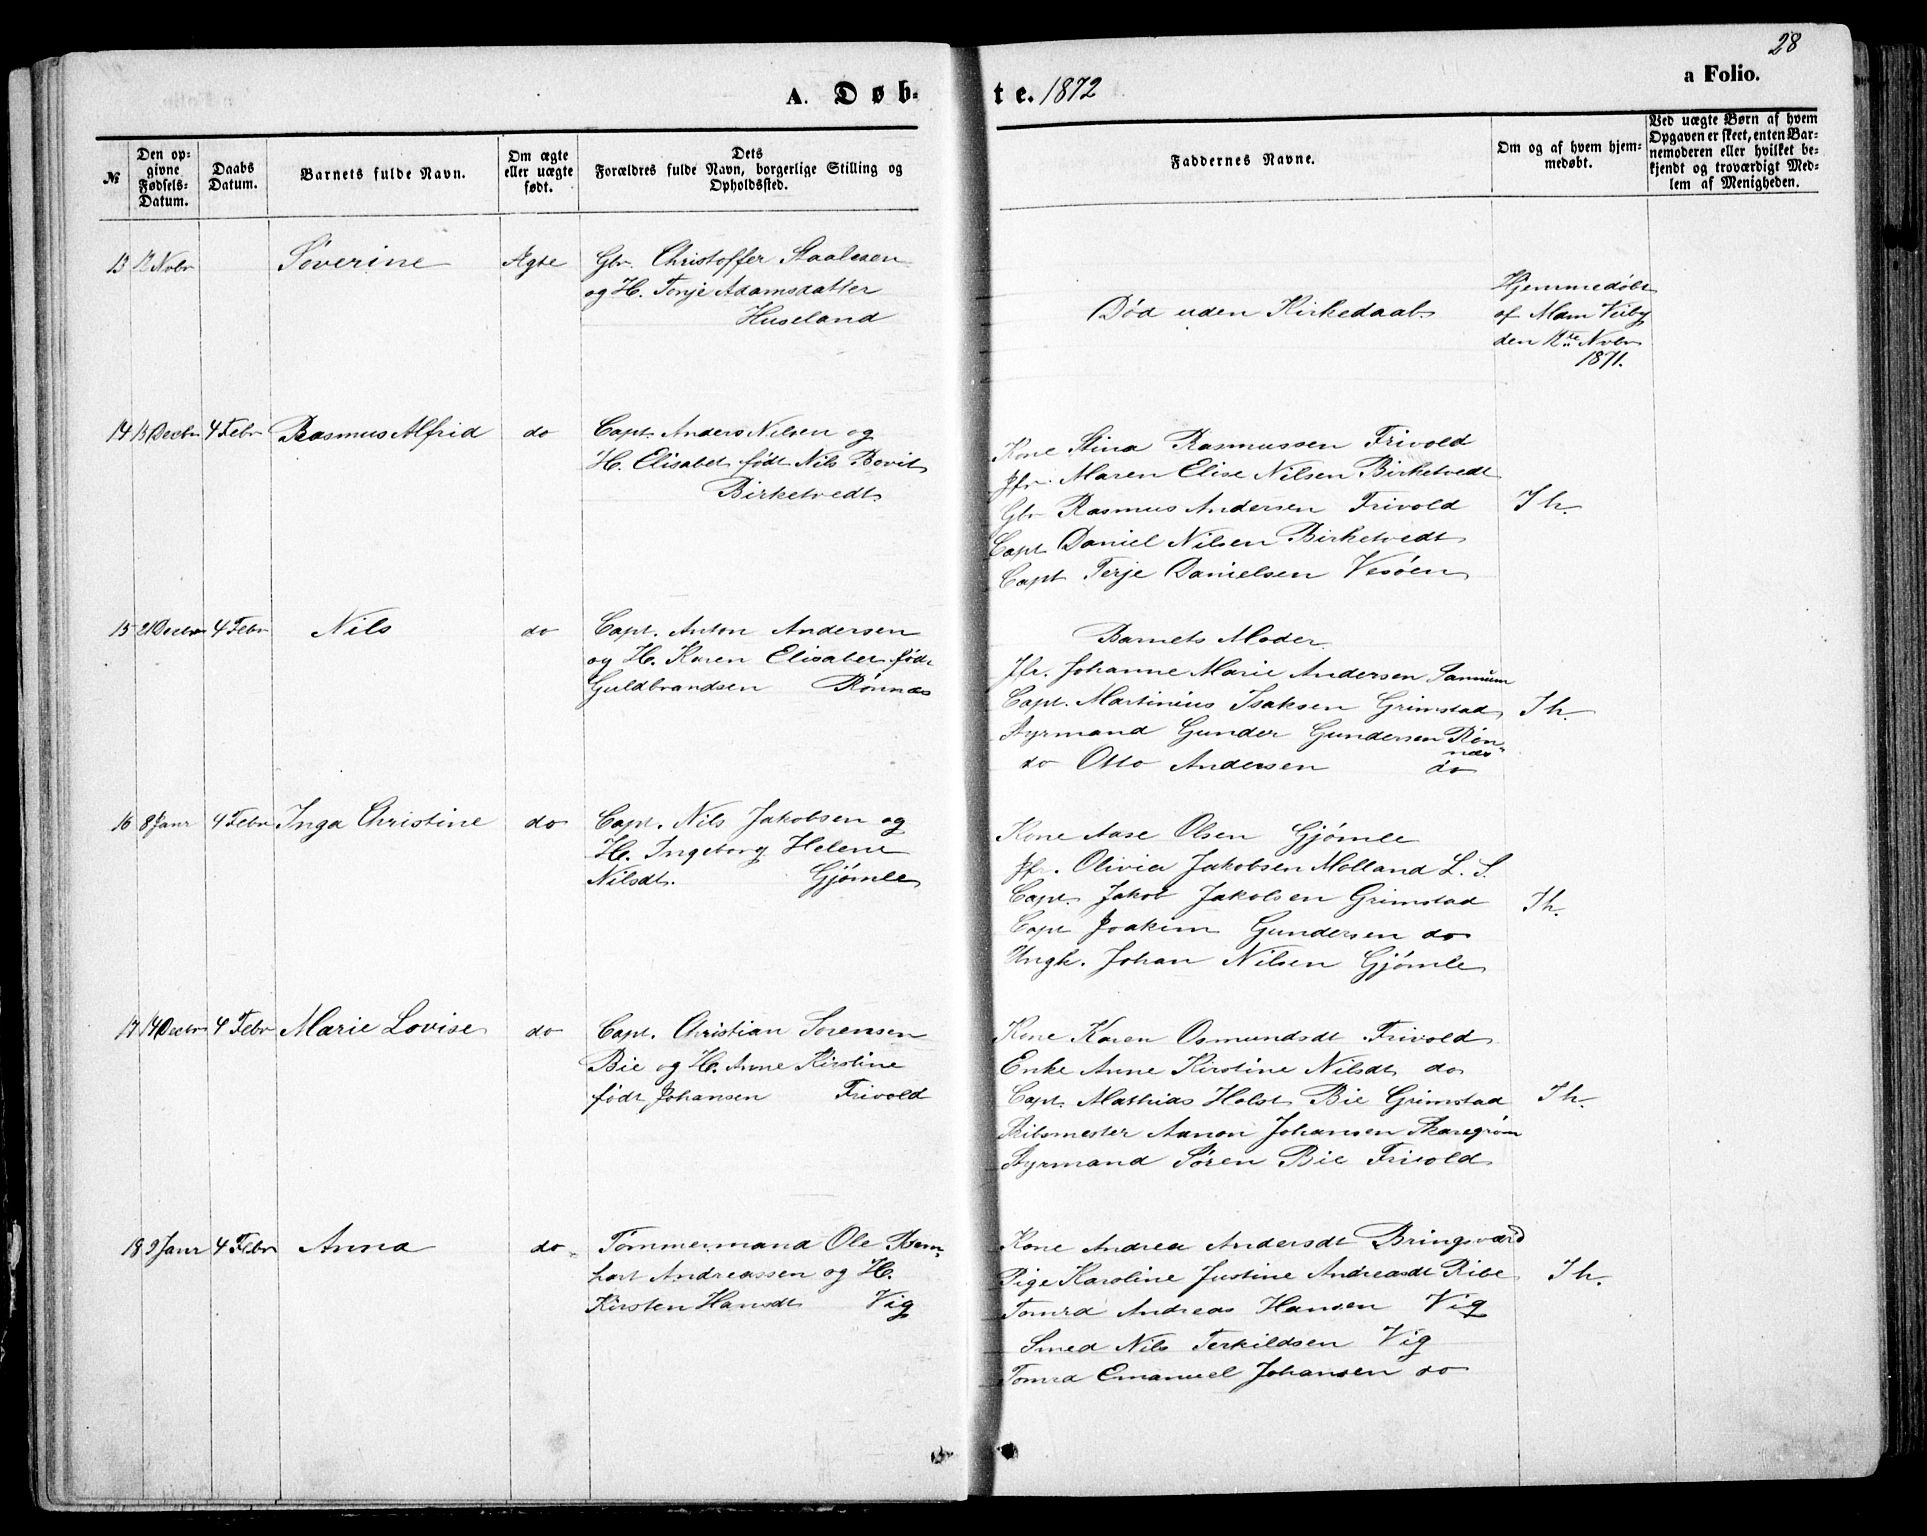 28
a Folio.
A. Døb-
te. 1872
№
Den op-
givne
Fødsels-
Datum.
Daabs
Datum.
Barnets fulde Navn.
Om ægte
eller uægte
født.
Dets
Forældres fulde Navn, borgerlige Stilling og
Opholdssted.
Faddernes Navne.
Om og af hvem hjem-
medøbt.
Ved uægte Børn af hvem
Opgaven er skeet, enten Bar-
nemoderen eller hvilket be-
kjendt og troværdigt Med-
lem af Menigheden.
13 12 Novbr Söverine Ægte Gbr. Christoffer Staalesen
og H. Tonje Adamsdatter
Huseland
Död uden Kirkedaab.
Hjemmedöbt
af Mam
den 12te Nvbr
1871.
14 13 Decbr 4 Febr Rasmus Alfrid do Capt. Anders Nilsen og
H. Elisabet födt Nils Bovit
Birketvedt
Kone Stina Rasmussen Frivold
Jfr. Maren Elise Nilsen Birketvedt
Gbr Rasmus Andersen Frivold Ih.
Capt Daniel Nilsen Birketvedt
Capt Terje Danielsen Vesöen
15 21 Decbr 4 Febr Nils do Capt. Anton Andersen
og H. Karen Elisabet födt
Guldbrandsen Rönnes
Barnets Moder
Jfr. Johanne Marie Andersen Sannum
Capt. Martinius Isaksen Grimstad Ih.
Styrmand Gunder Gundersen Rön-
nes
do Otto Andersen do
16 8 Janr 4 Febr Inga Christine do Capt. Nils Jakobsen og
H. Ingeborg Helene
Nilsdt. Gjömle
Kone Aase Olsen Gjömle
Jfr. Olivia Jakobsen Molland L. S.
Capt. Jakob Jakobsen Grimstad Ih.
Capt Joakim Gundersen do
Ungk. Johan Nilsen Gjömle
17 14 Decbr 4 Febr Marie Lovise do Capt. Christian Sorensen
Bie og H. Anne Kirstine
födt Johansen Frivold
Kone Karen Osmundsdt Frivold
Enke Anne Kirstine Nilsdt do
Capt. Mathias Holst Bie Grimstad Ih.
Skibsmester Aanon Johansen Skaregröm
Styrmand Sören Bie Frivold
18 9 Janr 4 Febr Anna do Tömmermand Ole Bern-
hart Andreassen og H.
Kirsten Hansdt Vig
Kone Andrea Andersdt Bringsværd
Pige Karoline Justine Andreasdt Ribe Ih.
Tomrd Andreas Hansen Vig
Smed Nils Terkildsen Vig
Tomrd Emanuel Johansen do